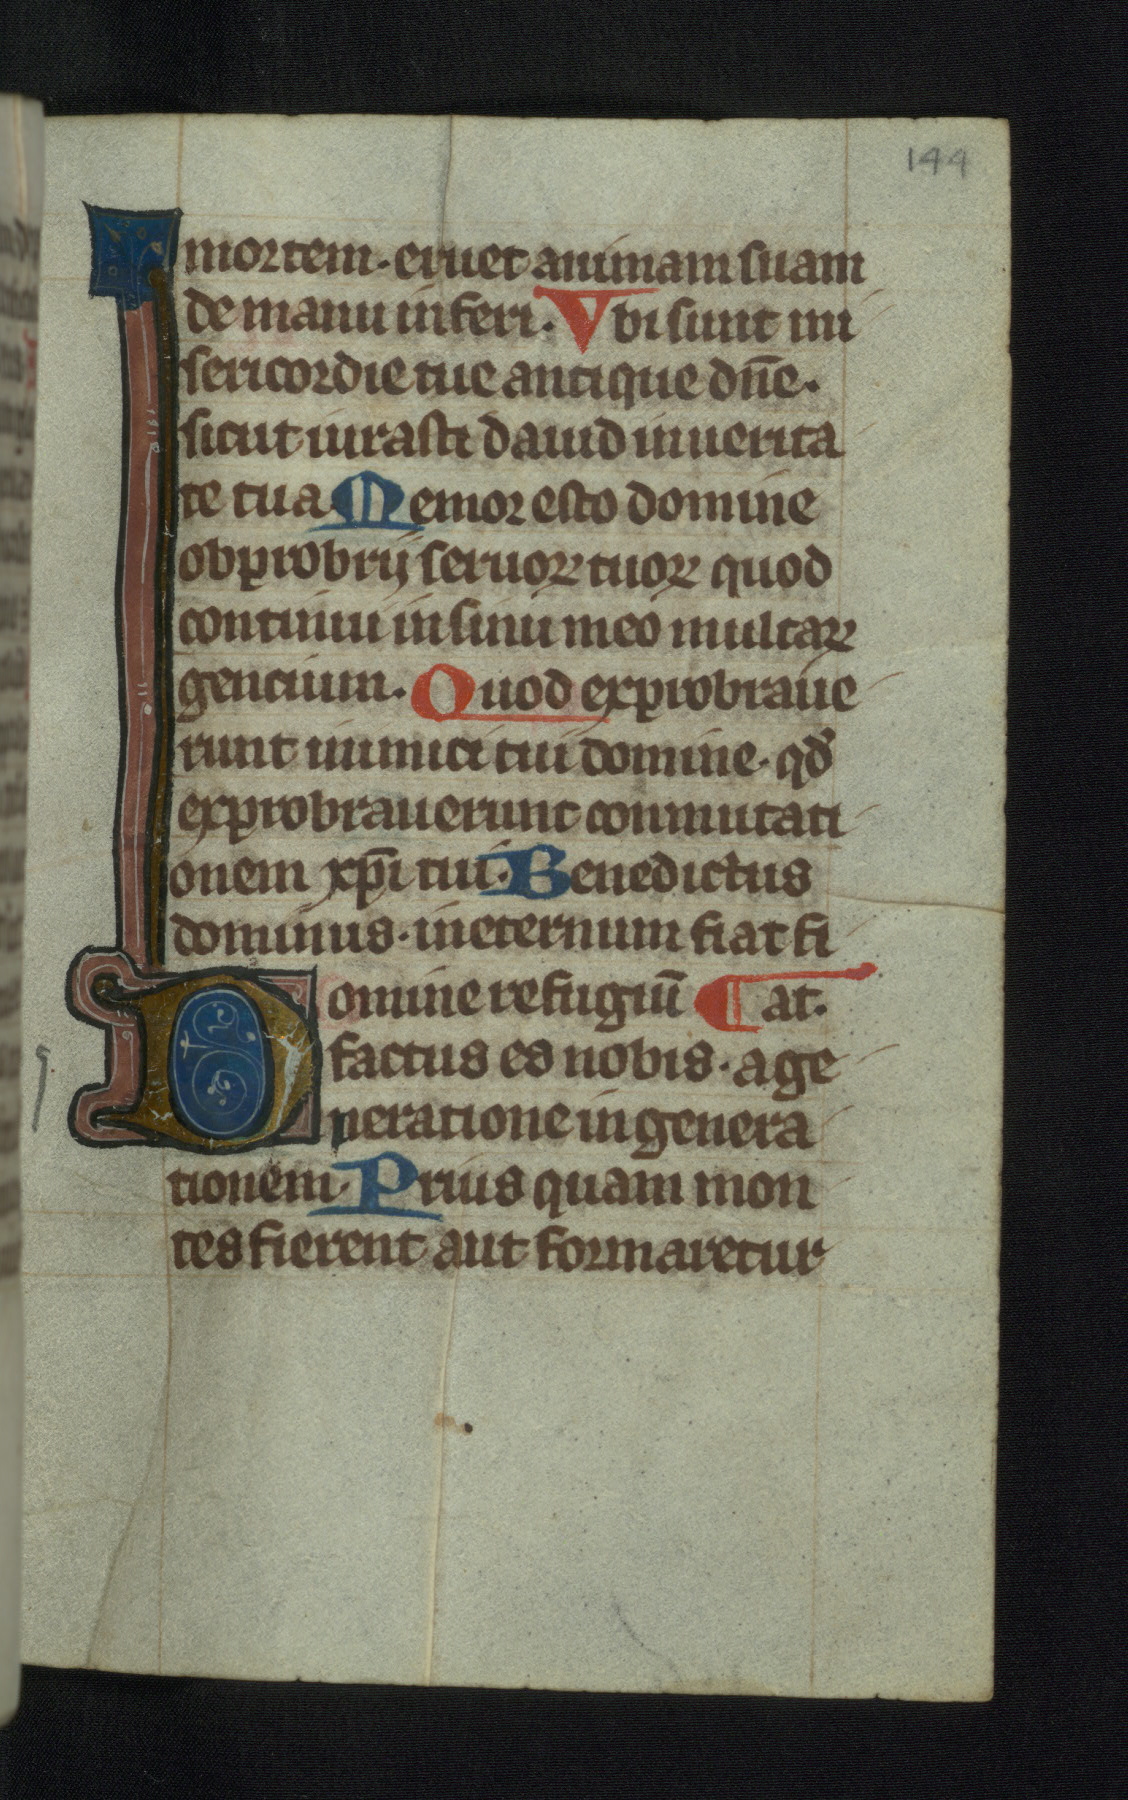 144
mortem. eruet animam suam
de manu inferi. Vbi sunt mi
sericordie tue antique dn̄e.
sicut iurasti dauid in uerita
te tua. Memor esto domine
obprobrij seruoꝝ tuoꝝ quod
continui in sinu meo multaꝝ
gencium. Quod exprobraue
runt inimici tui domine. qd̕
exprobrauerunt conmutati
onem xp̄i tui. Benedictus
dominus. in eternum fiat fi
Domine refugiū ¶ at.
factus es nobis. a ge
neratione in genera
tionem. Prius quam mon
tes fierent aut formaretur